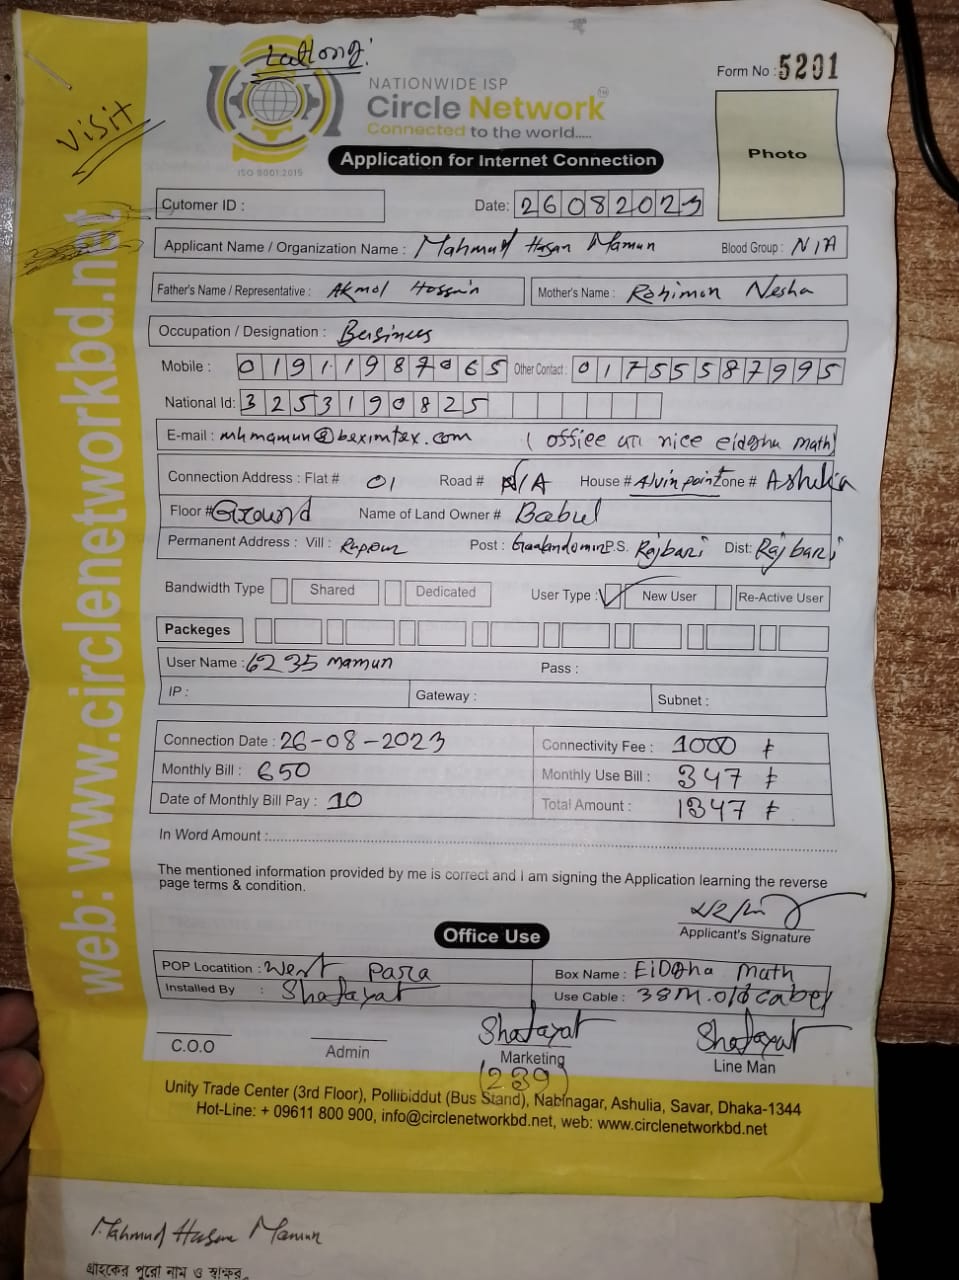 Latlong:
Visit
NATIONWIDE ISP
Circle Network
Connected to the world.....
ISO 9001:2015
Form No : 5201
Photo
Application for Internet Connection
Cutomer ID :
Date: 26082023
Applicant Name / Organization Name : Mahmud Hasan Mamun Blood Group : N/A
Father's Name / Representative : Akmol Hossain Mother's Name : Rohimon Nesha
Occupation / Designation : Business
Mobile : 01911987065 Other Contact : 01755587995
National Id: 3253190825
E-mail : mhmamun@beximtex.com ( office nice eidgha math)
Connection Address : Flat # 01 Road # N/A House # Alvin point Zone # Ashulia
Floor # Ground Name of Land Owner # Babul
Permanent Address : Vill : Post : P.S. Rajbari Dist: Rajbari
Bandwidth Type Shared Dedicated User Type : ✓ New User Re-Active User
Packeges
User Name : 6235 mamun Pass :
IP : Gateway : Subnet :
Connection Date : 26-08-2023 Connectivity Fee : 1000 ৳
Monthly Bill : 650 Monthly Use Bill : 347 ৳
Date of Monthly Bill Pay : 10 Total Amount : 1347 ৳
In Word Amount :
The mentioned information provided by me is correct and I am signing the Application learning the reverse
page terms & condition.
Applicant's Signature
Office Use
POP Locatition : West Para Box Name : EiDgha math
Installed By : Shafayat Use Cable : 38M. old cabel
C.O.O Admin Shafayat Marketing Shafayat Line Man
(239)
Unity Trade Center (3rd Floor), Pollibiddut (Bus Stand), Nabinagar, Ashulia, Savar, Dhaka-1344
Hot-Line: + 09611 800 900, info@circlenetworkbd.net, web: www.circlenetworkbd.net
web: www.circlenetworkbd.net
Mahmud Hasan Mamun
গ্রাহকের পুরো নাম ও স্বাক্ষর